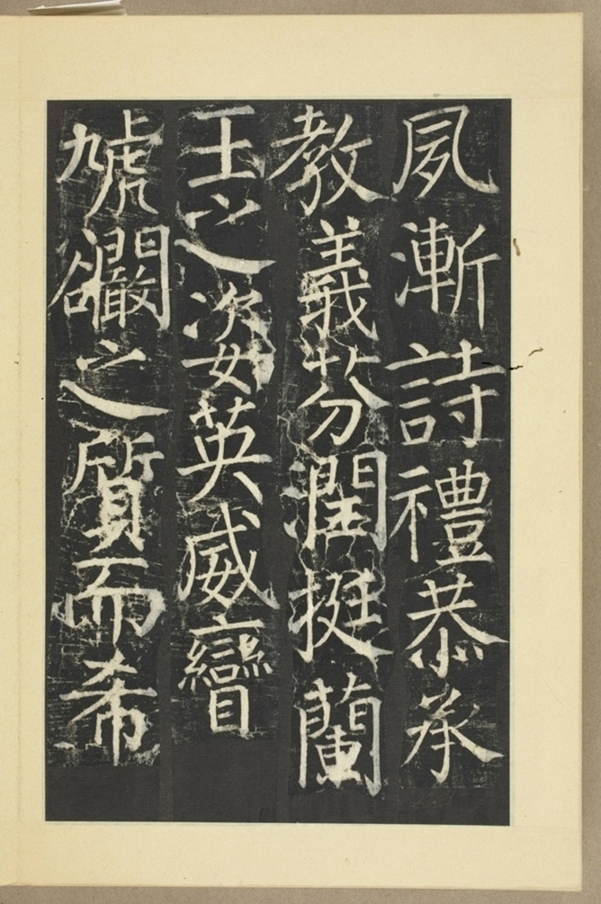 夙漸詩禮恭承
教義芬潤挺蘭
王之姿英威矕
虓之質而希